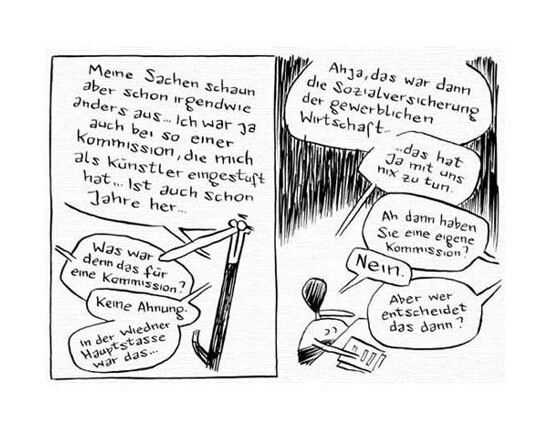 Meine Sachen schaun
aber schon irgendwie
anders aus... Ich war ja
auch bei so einer
Kommission, die mich
als Künstler eingestuft
hat... Ist auch schon
Jahre her...
Was war
denn das für
eine Kommission?
Keine Ahnung.
In der Wiedner
Hauptstasse
war das...
Ahja, das war dann
die Sozialversicherung
der gewerblichen
Wirtschaft...
...das hat
ja mit uns
nix zu tun.
Ah dann haben
Sie eine eigene
Kommission?
Nein.
Aber wer
entscheidet
das dann?